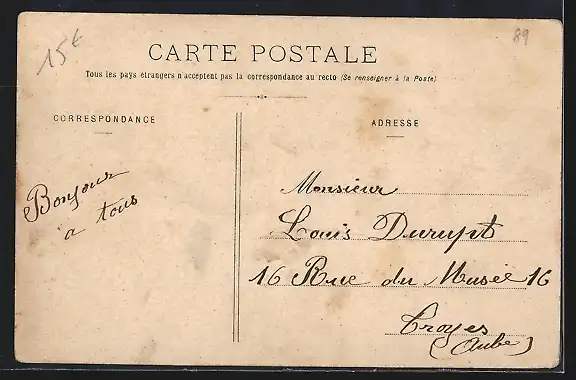 15€
89
CARTE POSTALE
Tous les pays étrangers n'acceptent pas la correspondance au recto (Se renseigner à la Poste)
CORRESPONDANCE
Bonjour
a tous
ADRESSE
Monsieur
Louis Durupt
16 Rue du Musée 16
Troyes
(Aube)